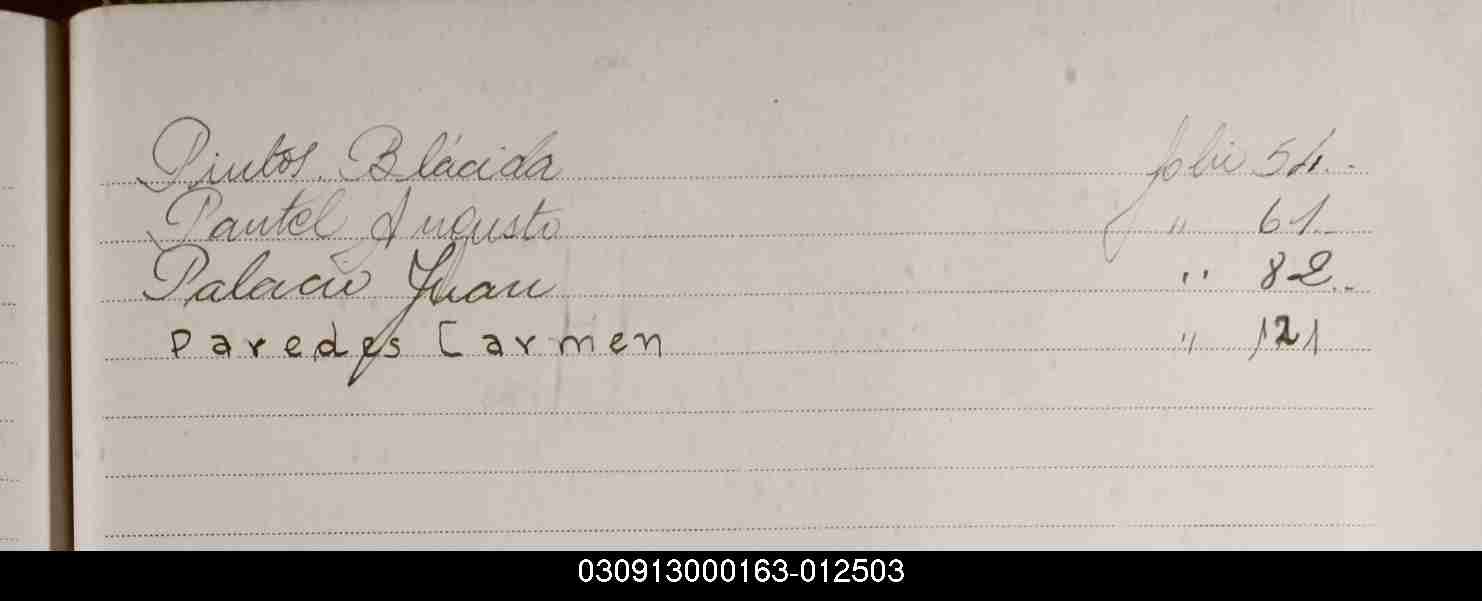 Pintos, Blácida folio 54.
Pantel Augusto " 61.
Palacio Juan " 82..
Paredes Carmen " 121
030913000163-012503